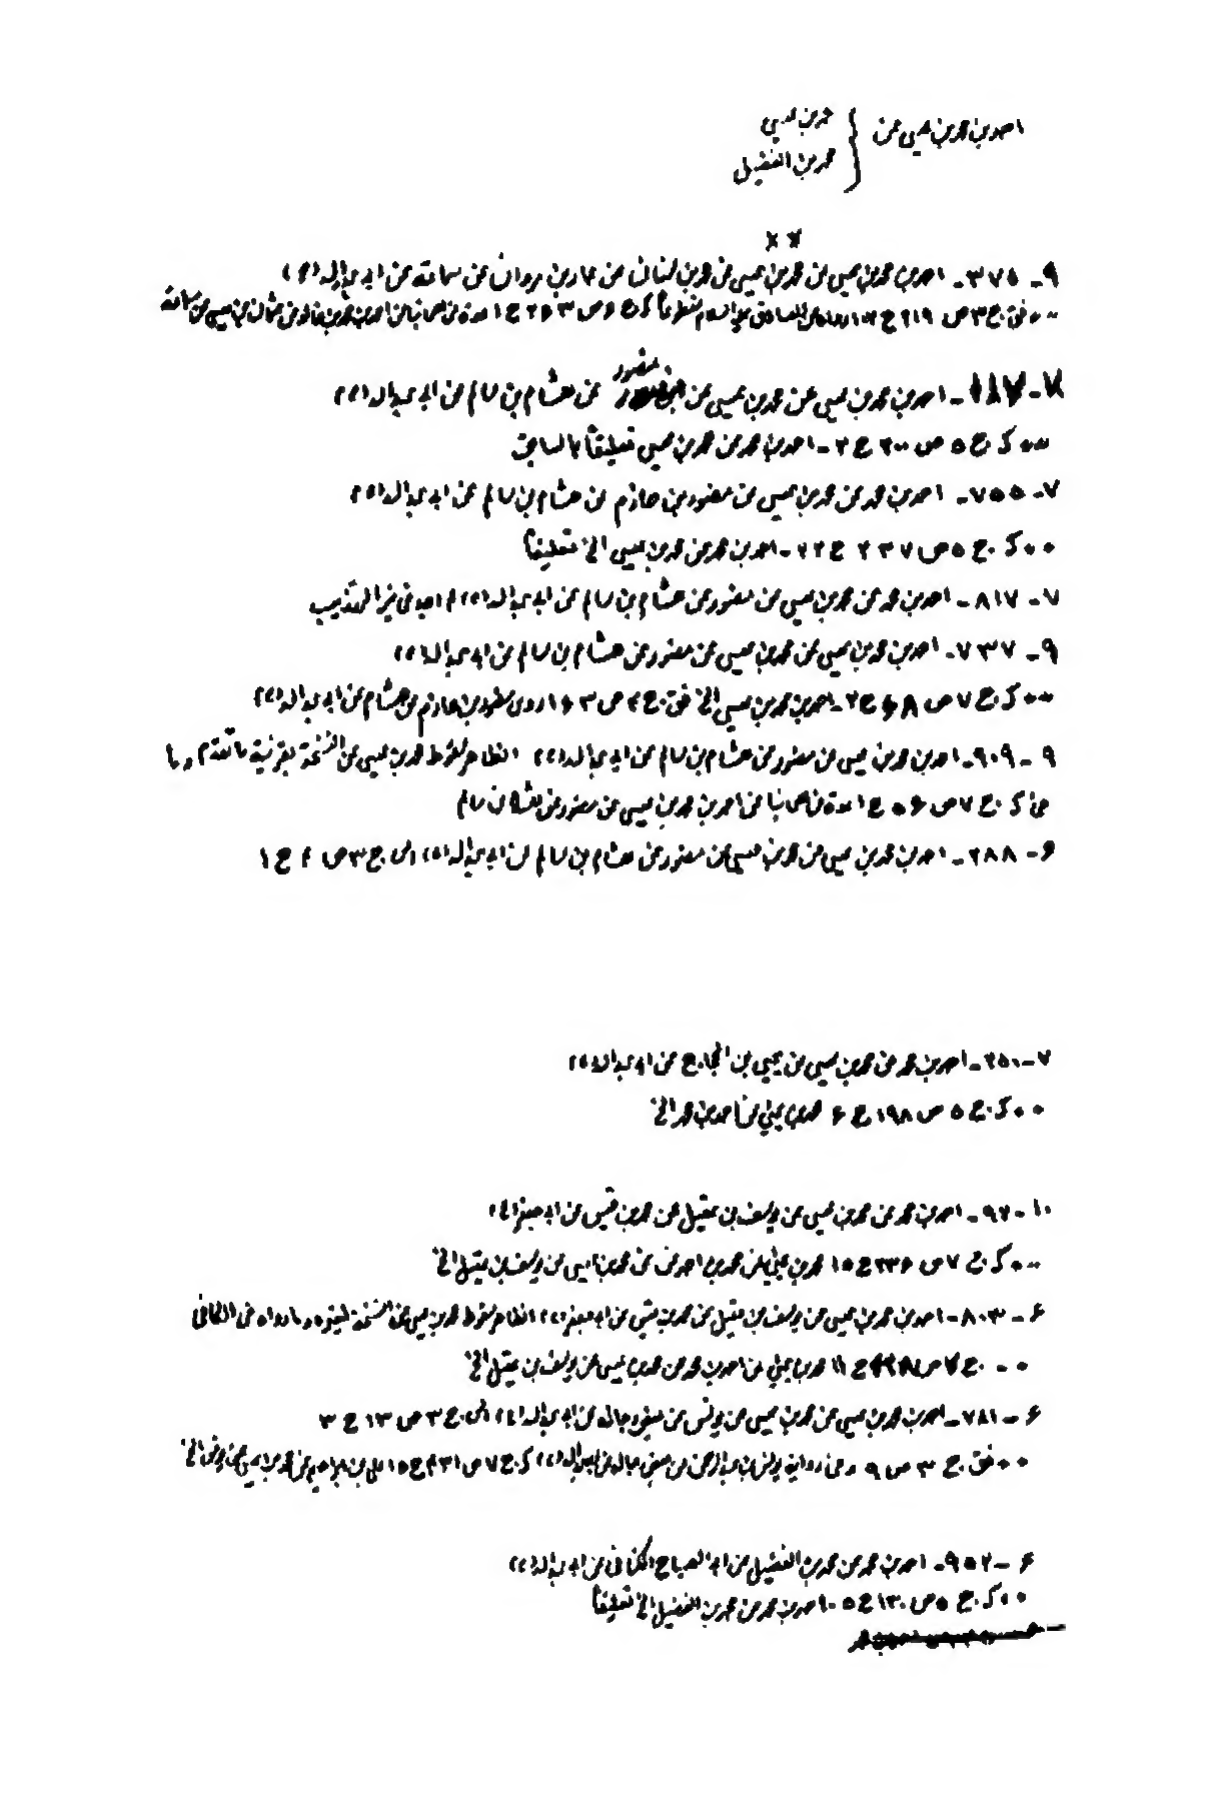 احمد بن محمد بن عيسى عن { محمد بن عيسى
محمد بن الفضيل
××
٩ - ٣٧٥ - احمد بن محمد بن عيسى عن محمد بن عيسى عن محمد بن سنان عن عمار بن مروان عن سماعة عن ابى عبدالله (ع)
٠٠ فق ج ٣ ص ٢١٩ ح
٧ - ١٨٧ - احمد بن محمد بن عيسى عن محمد بن عيسى عن منصور عن هشام بن سالم عن ابى عبدالله (ع)
٠٠ كا ج ٥ ص ٢٠٠ ح ٢ - احمد بن محمد عن محمد بن عيسى تعليقاً بالسابق
٧ - ٧٥٥ - احمد بن محمد عن محمد بن عيسى عن منصور بن حازم عن هشام بن سالم عن ابى عبدالله (ع)
٠٠ كا ج ٥ ص ٢٣٧ ح ٢٢ - احمد بن محمد عن محمد بن عيسى الخ تعليقاً
٧ - ٨١٧ - احمد بن محمد عن محمد بن عيسى عن منصور عن هشام بن سالم عن ابى عبدالله (ع) لم اجد فى غير التهذيب
٩ - ٧٣٧ - احمد بن محمد بن عيسى عن محمد بن عيسى عن منصور عن هشام بن سالم عن ابى عبدالله (ع)
٠٠ كا ج ٧ ص ٦٨ ح ٢ - احمد بن محمد بن عيسى الخ فق ج ٤ ص ١٦٣ روى منصور بن حازم عن هشام عن ابى عبدالله (ع)
٩ - ٩٠٩ - احمد بن محمد بن عيسى عن منصور عن هشام بن سالم عن ابى عبدالله (ع) الظاهر سقوط محمد بن عيسى عن النسخة بقرينة ما تقدم وما
فى كا ج ٧ ص ٥٦ ح ١ عدة من اصحابنا عن احمد بن محمد بن عيسى عن منصور عن هشام بن سالم
٦ - ٢٨٨ - احمد بن محمد بن عيسى عن محمد بن عيسى عن منصور عن هشام بن سالم عن ابى عبدالله (ع) اس ج ٣ ص ٤ ح ١
٧ - ٢٥٠ - احمد بن محمد عن محمد بن عيسى عن يحيى بن الحجاج عن ابى عبدالله (ع)
٠٠ كا ج ٥ ص ١٩٨ ح ٦ محمد بن يحيى عن احمد بن محمد الخ
١٠ - ٩٧ - احمد بن محمد عن محمد بن عيسى عن يوسف بن عقيل عن محمد بن قيس عن ابى جعفر (ع)
٠٠ كا ج ٧ ص ٢٣٦ ح ١٥ محمد بن يحيى عن احمد بن محمد عن محمد بن عيسى عن يوسف بن عقيل الخ
٦ - ٨٠٣ - احمد بن محمد بن عيسى عن يوسف بن عقيل عن محمد بن قيس عن ابى جعفر (ع) الظاهر سقوط محمد بن عيسى عن النسخة لغيره وما رواه فى الكافى
٠٠ ج ٧ ص ح ١١ محمد بن يحيى عن احمد بن محمد عن محمد بن عيسى عن يوسف بن عقيل الخ
٦ - ٧٨١ - احمد بن محمد بن عيسى عن محمد بن عيسى عن يونس عن بعض رجاله عن ابى عبدالله (ع) اس ج ٣ ص ١٣ ح ٣
٠٠ فق ج ٣ ص ٩ وفى رواية يونس بن عبدالرحمن عن بعض رجاله عن ابى عبدالله (ع) كا ج ٧ ص ٤٣١ ح ١٥ على بن ابراهيم عن محمد بن عيسى عن يونس الخ
٦ - ٩٥٢ - احمد بن محمد عن محمد بن الفضيل عن ابى الصباح الكنانى عن ابى عبدالله (ع)
٠٠ كا ج ٥ ص ١٣٠ ح ٥ - احمد بن محمد عن محمد بن الفضيل الخ تعليقاً